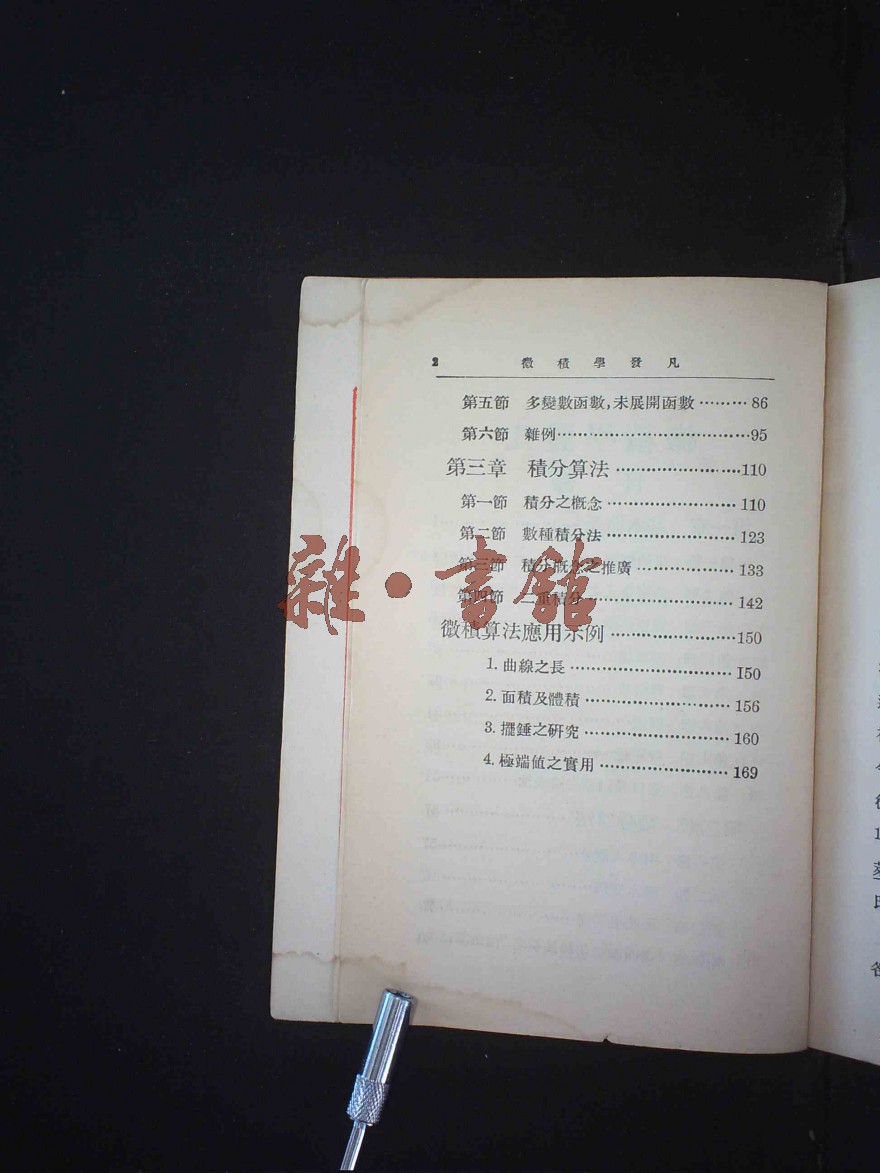 2 微積學發凡
第五節 多變數函數,未展開函數………86
第六節 雜例………………………………95
第三章 積分算法…………………110
第一節 積分之概念……………………110
第二節 數種積分法……………………123
第三節 積分概念之推廣………………133
第四節 二重積分………………………142
微積算法應用示例…………………150
1. 曲線之長……………………………150
2. 面積及體積…………………………156
3. 擺錘之研究…………………………160
4. 極端値之實用………………………169
雜·書館